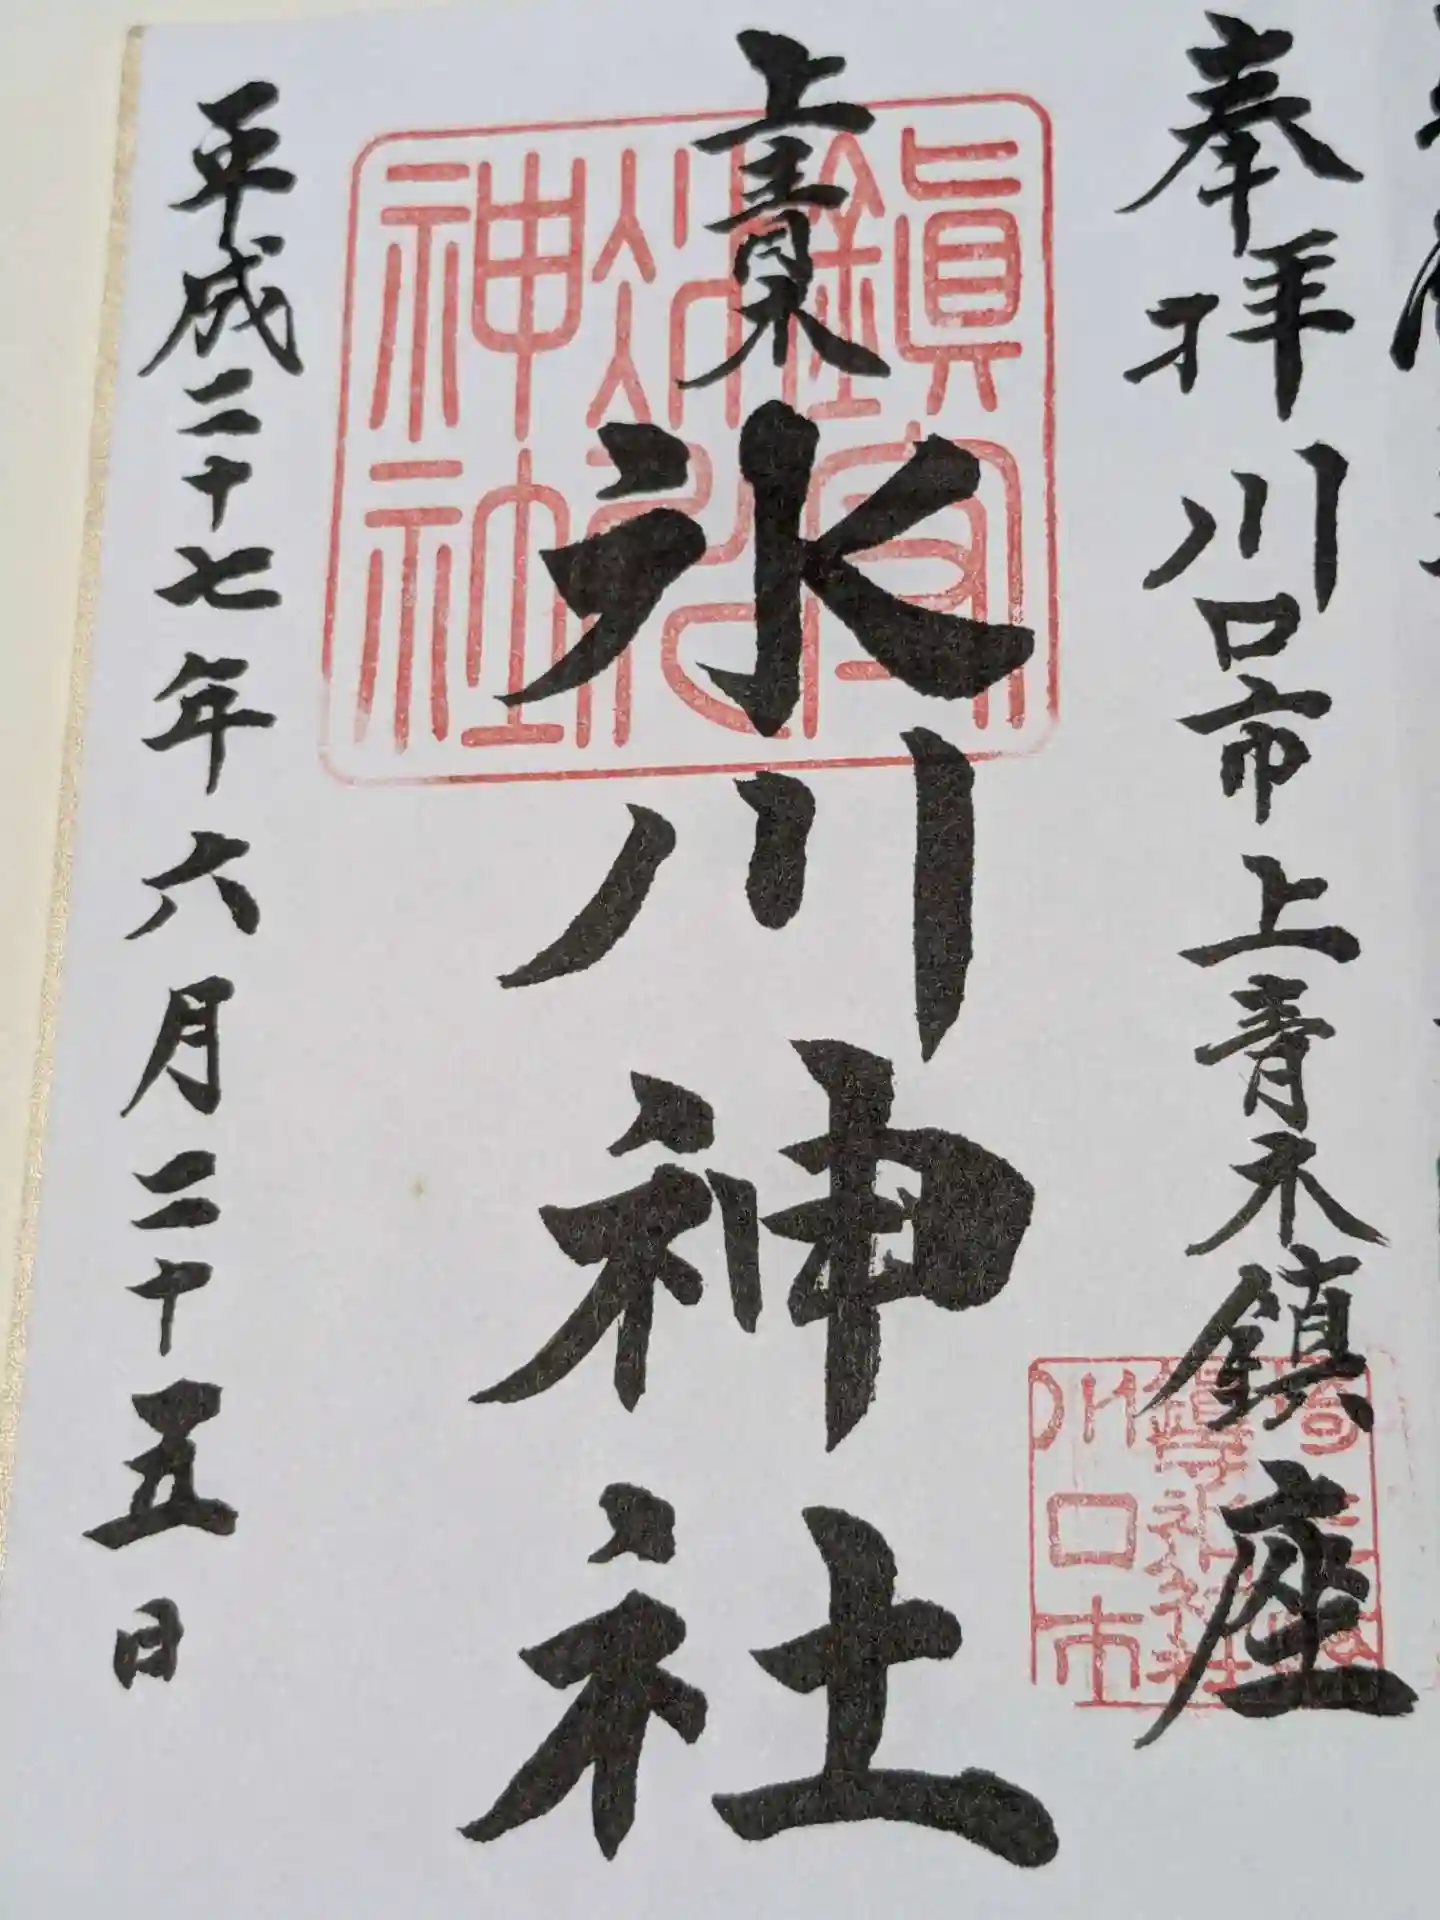 奉拝 川口市上青木鎮座
上青木
氷川神社
平成二十七年六月二十五日
鎮守
氷川
神社
川口市
鎮守氷川神社